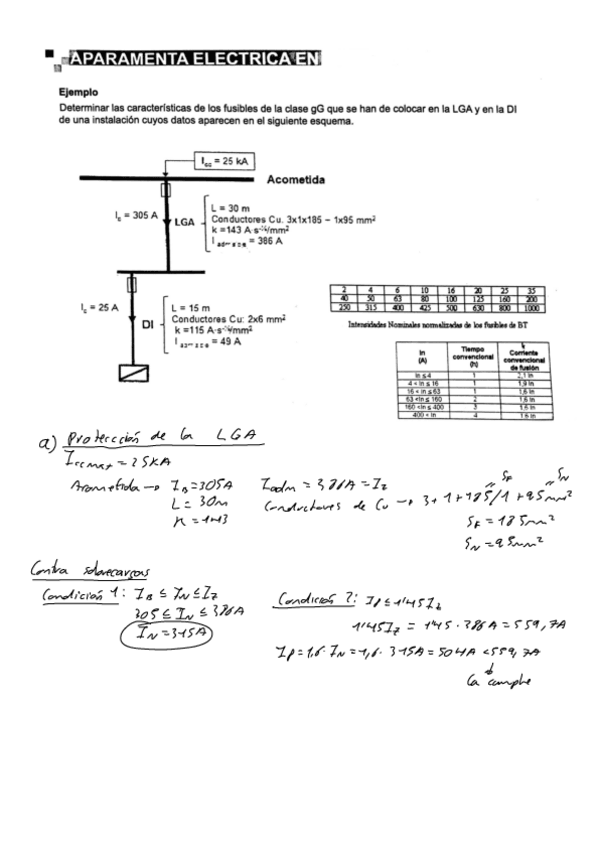 APARAMENTA ELECTRICA EN
Ejemplo
Determinar las características de los fusibles de la clase gG que se han de colocar en la LGA y en la DI
de una instalación cuyos datos aparecen en el siguiente esquema.
Icc = 25 kA
Acometida
Ic = 305 A
LGA
L = 30 m
Conductores Cu. 3x1x185 – 1x95 mm²
k =143 A·s-½/mm²
= 386 A
Ic = 25 A
DI
L = 15 m
Conductores Cu: 2x6 mm²
k =115 A·s-½/mm²
= 49 A
2 4 6 10 16 20 25 35
40 50 63 80 100 125 160 200
250 315 400 425 500 630 800 1000
Intensidades Nominales normalizadas de los fusibles de BT
In (A) Tiempo convencional (h) Corriente convencional de fusión
In ≤ 4 1 2,1 In
4 < In ≤ 16 1 1,9 In
16 < In ≤ 63 1 1,6 In
63 <In ≤ 160 2 1,6 In
160 <In ≤ 400 3 1,6 In
400 < In 4 1,6 In
a) Protección de la LGA
Iccmax = 25KA
Acometida → IB = 305A
L = 30m
K = 143
Iadm = 386A = Iz
Conductores de Cu → 3+1+185/1+95mm²
SF
SN
SF = 185mm²
SN = 95mm²
Contra sobrecargas
Condición 1: IB ≤ IN ≤ IZ
305 ≤ IN ≤ 386A
IN = 315A
Condición 2: If ≤ 1'45Iz
1'45Iz = 1'45 · 386A = 559,7A
If = 1,6 · IN = 1,6 · 315A = 504A < 559,7A
la cumple